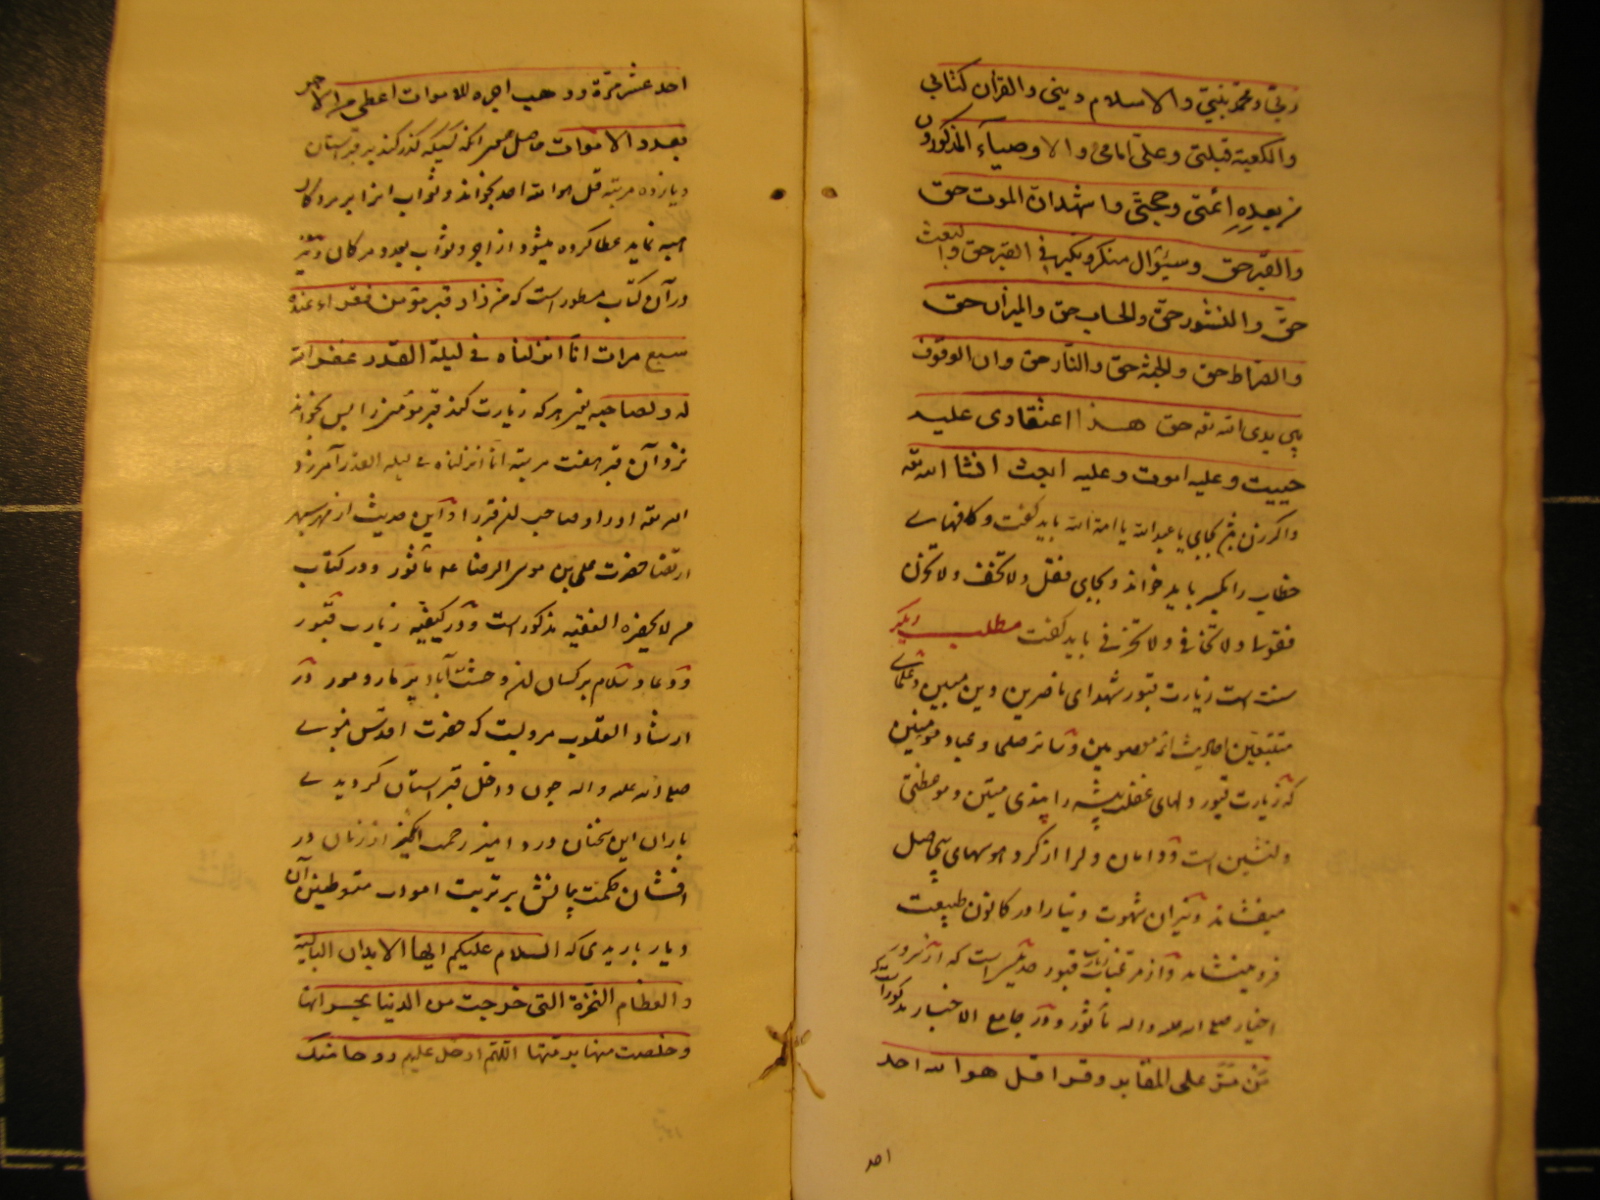 ربی و محمد نبیی والاسلام دینی والقرآن کتابی
والکعبة قبلتی وعلی امامی والاوصیاء المذکورون
من بعده ائمتی و حججی واشهد ان الموت حق
والقبر حق وسؤال منکر ونکیر فی القبر حق والبعث
حق والنشور حق والحساب حق والمیزان حق
والصراط حق والجنة حق والنار حق وان الوقوف
بین یدی الله تعه حق هذا اعتقادی علیه
حییت وعلیه اموت وعلیه ابعث انشا الله تعه
واکر زن بجای یا عبدالله یا امة الله باید کفت و کافهای
خطاب را بکسر باید خواند و بجای فقل ولا تخف ولا تحزن
فقولی ولا تخافی ولا تحزنی باید کفت مطلب دیکر
سنت است زیارت قبور شهدای ناصرین دین مبین و علمای
متتبعین احادیث ائمه معصومین و سائر صلحا و عباد مومنین
که زیارت قبور دلهای غفلت پیشه را پندی متین و موعظتی
دلنشین است و دامان دلرا از کرد هوسهای بی حاصل
میفشاند و نیران شهوت دنیا را در کانون طبیعت
فرو مینشاند و از مرغبات زیارت قبور حدیثیست که از سرور
اخیار صلی الله علیه واله ماثور و در جامع الاخبار مذکور است که
من مر علی المقابر وقرا قل هو الله احد
احد
احد عشر مرة ووهب اجره للاموات اعطی من الاجر
بعدد الاموات حاصل معنی انکه کسیکه کذر کند بر قبرستان
و یازده مرتبه قل هو الله احد بخواند و ثواب انرا بر مردکان
هبه نماید عطا کرده میشود از اجر و ثواب بعدد مردکان و نیز
در آن کتاب مسطور است که من زار قبر مؤمن فقراء عنده
سبع مرات انا انزلناه فی لیلة القدر غفر الله
له ولصاحبه یعنی هر که زیارت کند قبر مؤمنی را پس بخواند
نزد آن قبر هفت مرتبه انا انزلناه فی لیلة القدر آمرزد
الله تعه او را و صاحب ان قبر را و این حدیث از مهر سپهر
ارتضا حضرت علی بن موسی الرضا عه ماثور و در کتاب
من لایحضره الفقیه مذکور است و در کیفیه زیارت قبور
و دعا و سلام بر کسان ان وحشت آباد پر مار و مور در
ارشاد القلوب مرویست که حضرت اقدس نبوی
صلی الله علیه واله چون داخل قبرستان کردیدی
باران این سخنان درد امیز رحمت انکیز از زبان در
افشان حکمت بیانش بر تربت اموات متوطنین آن
دیار باریدی که السلام علیکم ایها الابدان البالیة
والعظام النخرة التی خرجت من الدنیا بحسراتها
وحصلت منها برمتها اللهم ادخل علیهم روحا منک